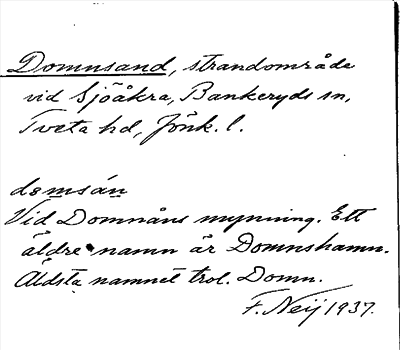 Domnsand, strandområde
vid Sjöåkra, Bankeryds sn,
Tveta hd, Jönk. l.
domsán
Vid Domnåns mynning. Ett
äldre namn är Domnshamn.
Äldsta namnet trol. Domn.
F. Neij 1937.